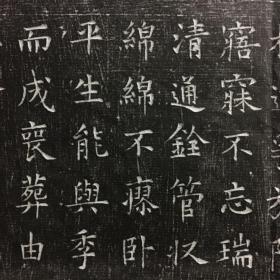 寤寐不忘瑞
清通銓管収
綿綿不瘳卧
平生能與季
而成喪葬由